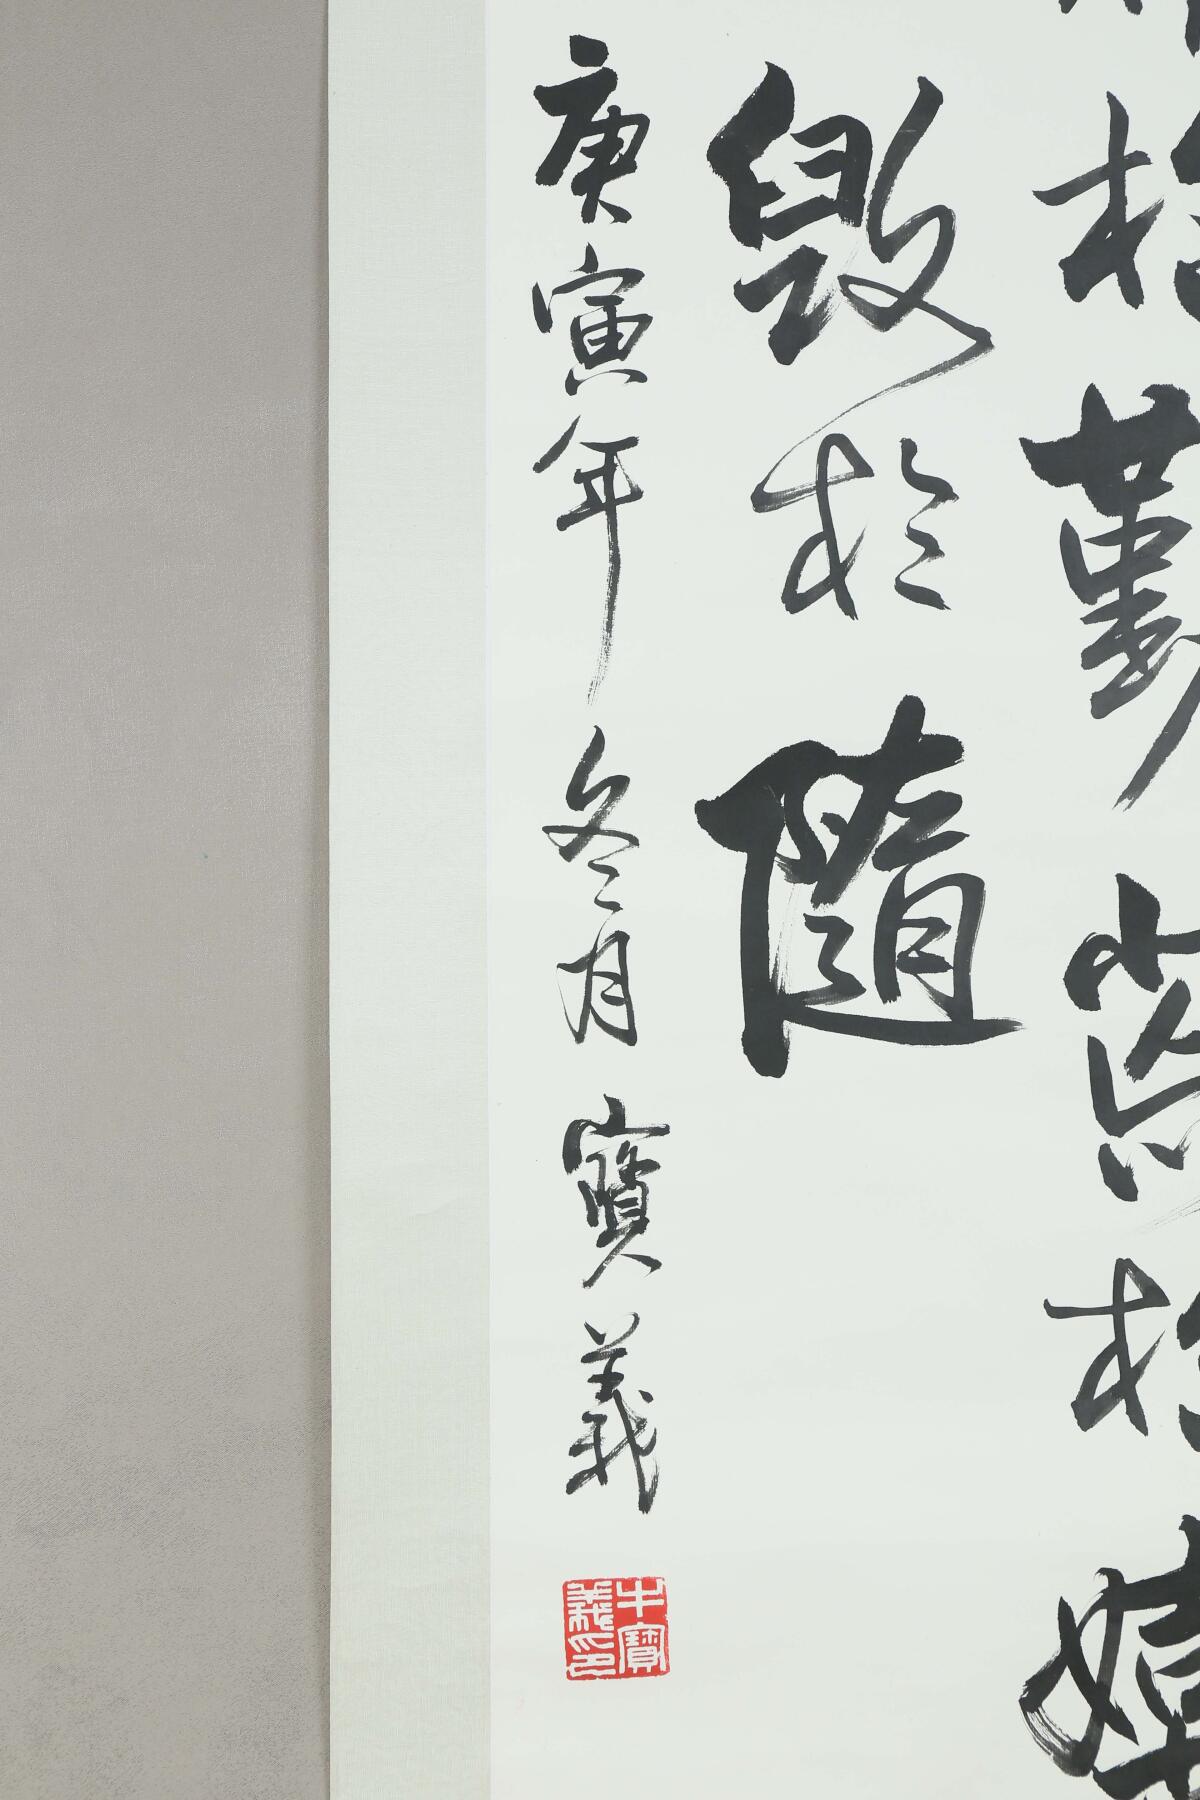 精於勤荒於嬉
毀於隨
庚寅年冬月寶義
牛寶義印